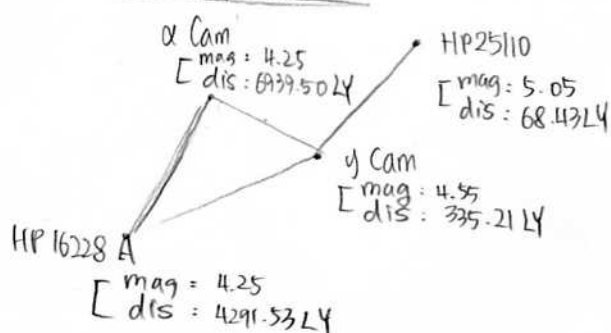 α Cam
[ mag : 4.25
dis : 6939.50 LY
HP25110
[ mag : 5.05
dis : 68.43 LY
γ Cam
[ mag : 4.55
dis : 335.21 LY
HP 16228 A
[ mag = 4.25
dis = 4291.53 LY